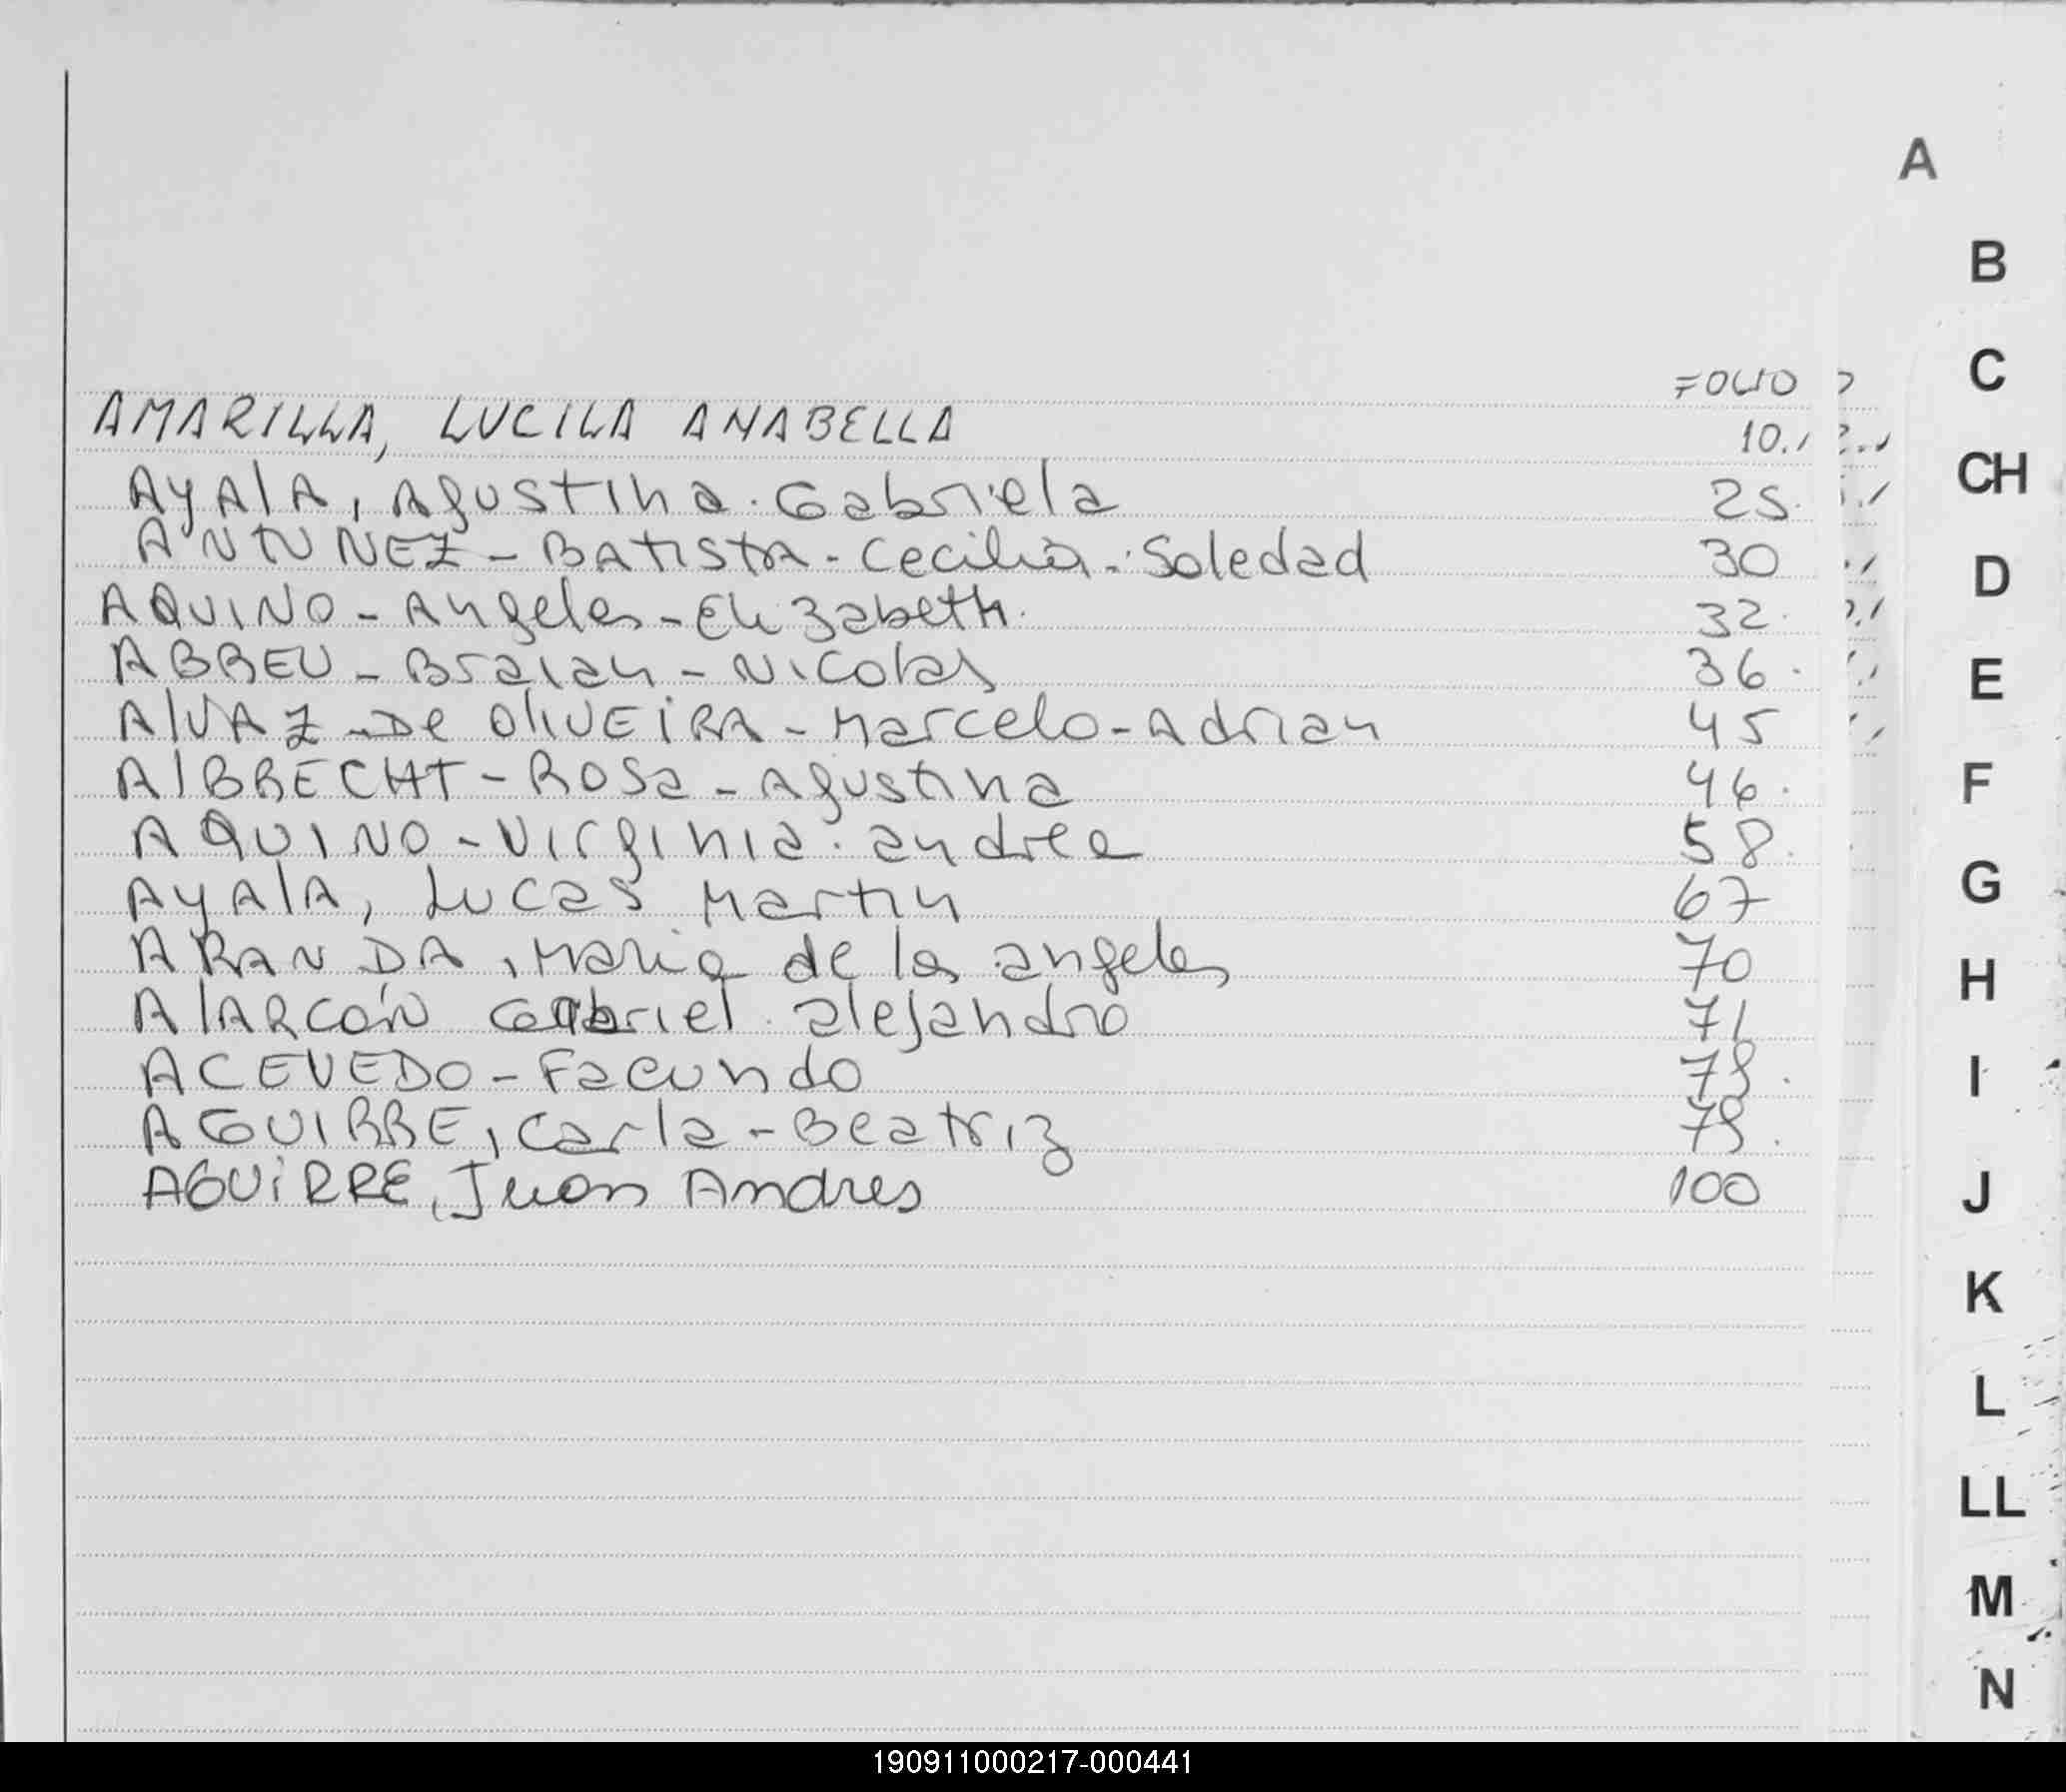 A
B
C
FOLIO
AMARILLA, LUCILA ANABELLA 10.
CH
AyAlA, Agustina. Gabriela 25.
ANTUNEZ - BATISTA - Cecilia. Soledad 30
D
AQUINO - Angeles - Elizabeth. 32.
ABREU - Braian - Nicolas 36.
E
AlVAZ - De OlIVEiRA - Marcelo - Adrian 45
AlBRECHT - ROSa - Agustina 46.
F
AQUINO - Virginia. andrea 58.
AyAlA, Lucas Martin 67
G
ARANDA, Maria de los angeles 70
H
AlARCóN Gabriel alejandro 71
ACEVEDO - Facundo
I
AGUIRRE, Carla - Beatriz
AGUiRRE, Juan Andres 100
J
K
L
LL
M
N
190911000217-000441